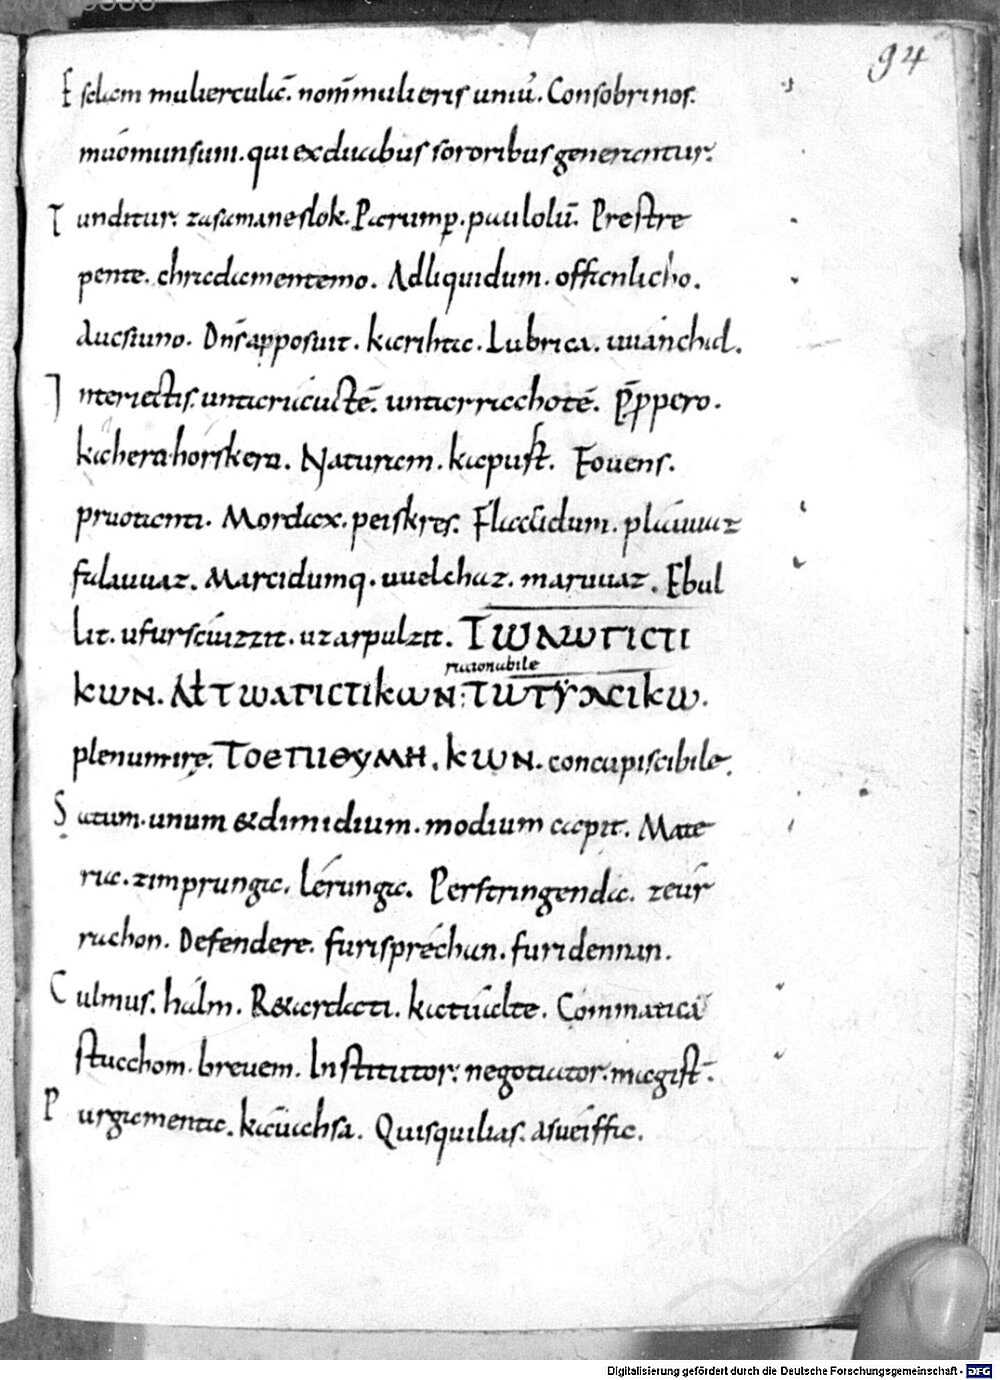 94
Esdiem muliercule. nom̄ mulieris uniū. Consobrinos.
muomunsuni. qui ex duabus sororibus generantur.
Tunditur. zasamaneslok. Parump̄. paulolū. Prestre
pente. chradamentemo. Ad liquidum. offanlicho.
aucsiuno. Dn̄s apposuit. karihta. Lubrica. uuanchal.
Interiectis. untarucuctē. untarricchotē. P̄ppero.
kahera horskera. Naturam. kapust. Fouens.
pruotanti. Mordax. peiskres. Flaccidum. plauuaz
falauuaz. Marcidumq. uuelchaz. maruuaz. Ebul
lit. ufarscuizzit. uzarpulzit. ΤωΛωΓΙCΤΙ
κωΝ. Λłτωατιcτικωn: Τωτyλcικω.
rationabile
plenum ire. ΤΟΕΠΙΘΥΜΗ. κωΝ. concupiscibile.
Satum. unum & dimidium. modium capit. Mate
ria. zimprunga. lérunga. Perstringenda. zeur
rachon. Defendere. farisprechan. faridennan.
Culmus. halm. R&ardati. katualte. Commatica
stucchom. breuem. Institutor. negotiator. magist̄.
Purgamenta. kauuahsa. Quisquilias. asueiffa.
Digitalisierung gefördert durch die Deutsche Forschungsgemeinschaft - DFG